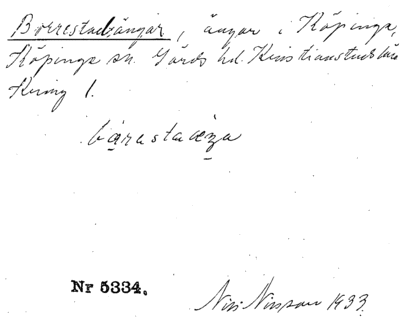 Borrestadsängar, ängar i Köpinge,
Köpinge sn. Gärds hd. Kristianstads län
Kring 1.
bárasta
Nr 5334.
Nils Nilsson 1933